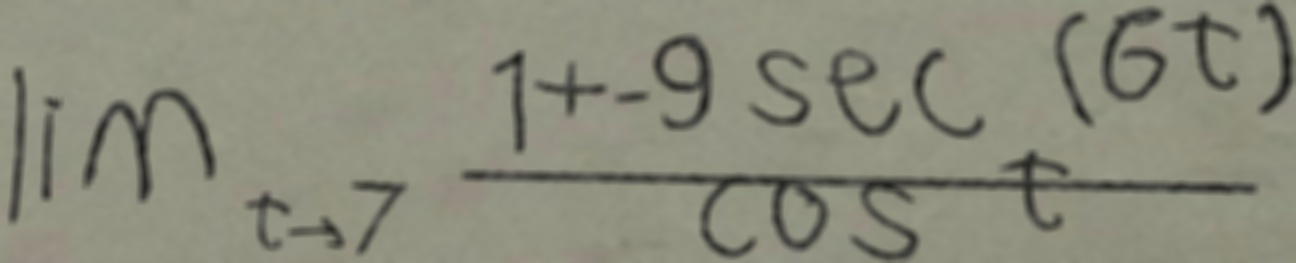 \lim_{t \to 7} \frac{1+-9 \sec (6t)}{\cos t}